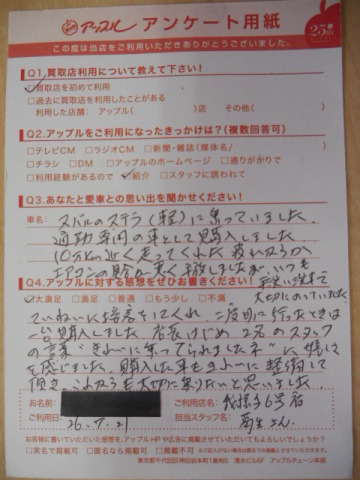 アップル アンケート用紙
25th
この度は当店をご利用いただきありがとうございました。
Q1.買取店利用について教えて下さい!
☑買取店を初めて利用
□過去に買取店を利用したことがある
利用した店舗: アップル( )店 その他( )
Q2.アップルをご利用になったきっかけは?(複数回答可)
□テレビCM □ラジオCM □新聞・雑誌(媒体名/ )
□チラシ □DM □アップルのホームページ □通りがかりで
□利用経験があるので ☑紹介 □スタッフに誘われて
Q3.あなたと愛車との思い出を聞かせください!
車名: スバルのステラ(軽)に乗っていました。
通勤専用の車として購入しました
10万km近く走ってくれた
エアコンの いつも
Q4.アップルに対する感想をぜひお書きください!
大切にのっていました
☑大満足 □満足 □普通 □もう少し □不満
ていねいに接客をしてくれ、二度目に行ったときは
購入しました 店長はじめ 2名のスタッフ
の言葉“きれいに乗ってられましたネ”に
を感じました。購入した車もきれいに整備して
頂き、これからも大切に乗りたいと思いました
お名前: ご利用店名: 我孫子6号店
ご利用日: 26.7.21 担当スタッフ名: さん
お客様に書いていただいた感想を、アップルHPや広告に掲載させていただいてもよろしいでしょうか?
□実名で掲載可 □匿名なら掲載可 □掲載不可
東京都千代田区神田佐久間町1番地5 清水ビル6F アップルチェーン本部